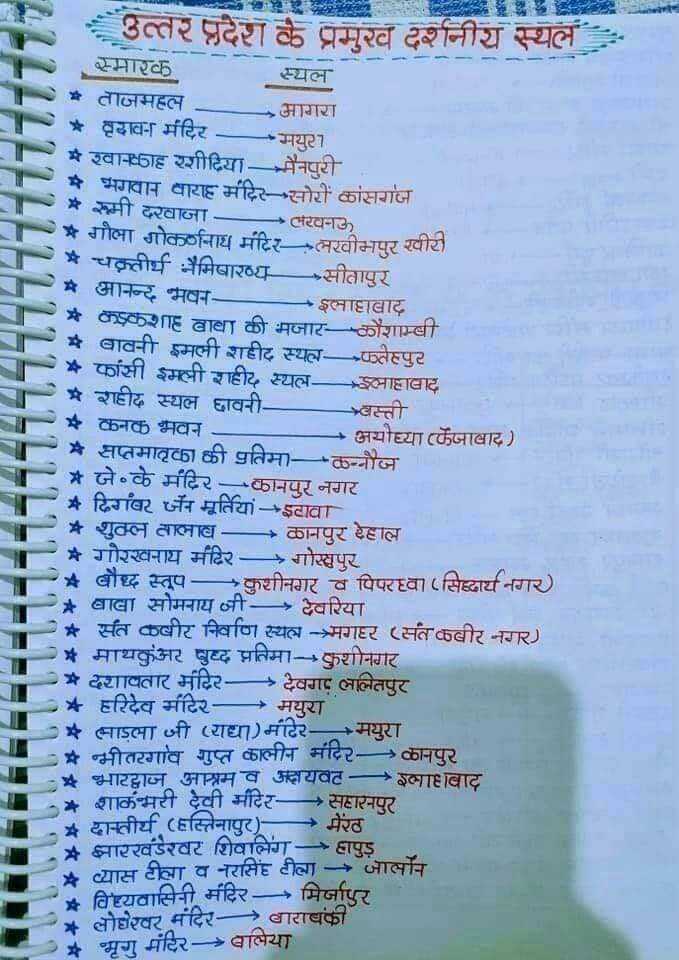 उत्तर प्रदेश के प्रमुख दर्शनीय स्थल
स्मारक स्थल
★ ताजमहल → आगरा
★ वृदावन मंदिर → मथुरा
★ खानकाह रशीदिया → मैनपुरी
★ भगवान वाराह मंदिर → सोरों कांसगंज
★ रूमी दरवाजा → लखनऊ
★ गोला गोकर्णनाथ मंदिर → लखीमपुर खीरी
★ चक्रतीर्थ नैमिषारण्य → सीतापुर
★ आनन्द भवन → इलाहाबाद
★ कड़कशाह बाबा की मजार → कौशाम्बी
★ बावनी इमली शहीद स्थल → फतेहपुर
★ फांसी इमली शहीद स्थल → इलाहाबाद
★ शहीद स्थल छावनी → बस्ती
★ कनक भवन → अयोध्या (फैजाबाद)
★ सप्तमातृका की प्रतिमा → कन्नौज
★ जे०के मंदिर → कानपुर नगर
★ दिगंबर जैन मूर्तियां → इटावा
★ शुक्ल तालाब → कानपुर देहात
★ गोरखनाथ मंदिर → गोरखपुर
★ बौध्द स्तूप → कुशीनगर व पिपरहवा (सिध्दार्थ नगर)
★ बाबा सोमनाथ जी → देवरिया
★ संत कबीर निर्वाण स्थल → मगहर (संत कबीर नगर)
★ माथकुंअर बुध्द प्रतिमा → कुशीनगर
★ दशावतार मंदिर → देवगढ़ ललितपुर
★ हरिदेव मंदिर → मथुरा
★ लाडला जी (राधा) मंदिर → मथुरा
★ भीतरगांव गुप्त कालीन मंदिर → कानपुर
★ भारद्वाज आश्रम व अक्षयवट → इलाहाबाद
★ शाकंभरी देवी मंदिर → सहारनपुर
★ दानतीर्थ (हस्तिनापुर) → मेरठ
★ झारखंडेश्वर शिवालिंग → हापुड़
★ व्यास टीला व नरसिंह टीला → जालौन
★ विंध्यवासिनी मंदिर → मिर्जापुर
★ लोधेश्वर मंदिर → बाराबंकी
★ भृगु मंदिर → बलिया